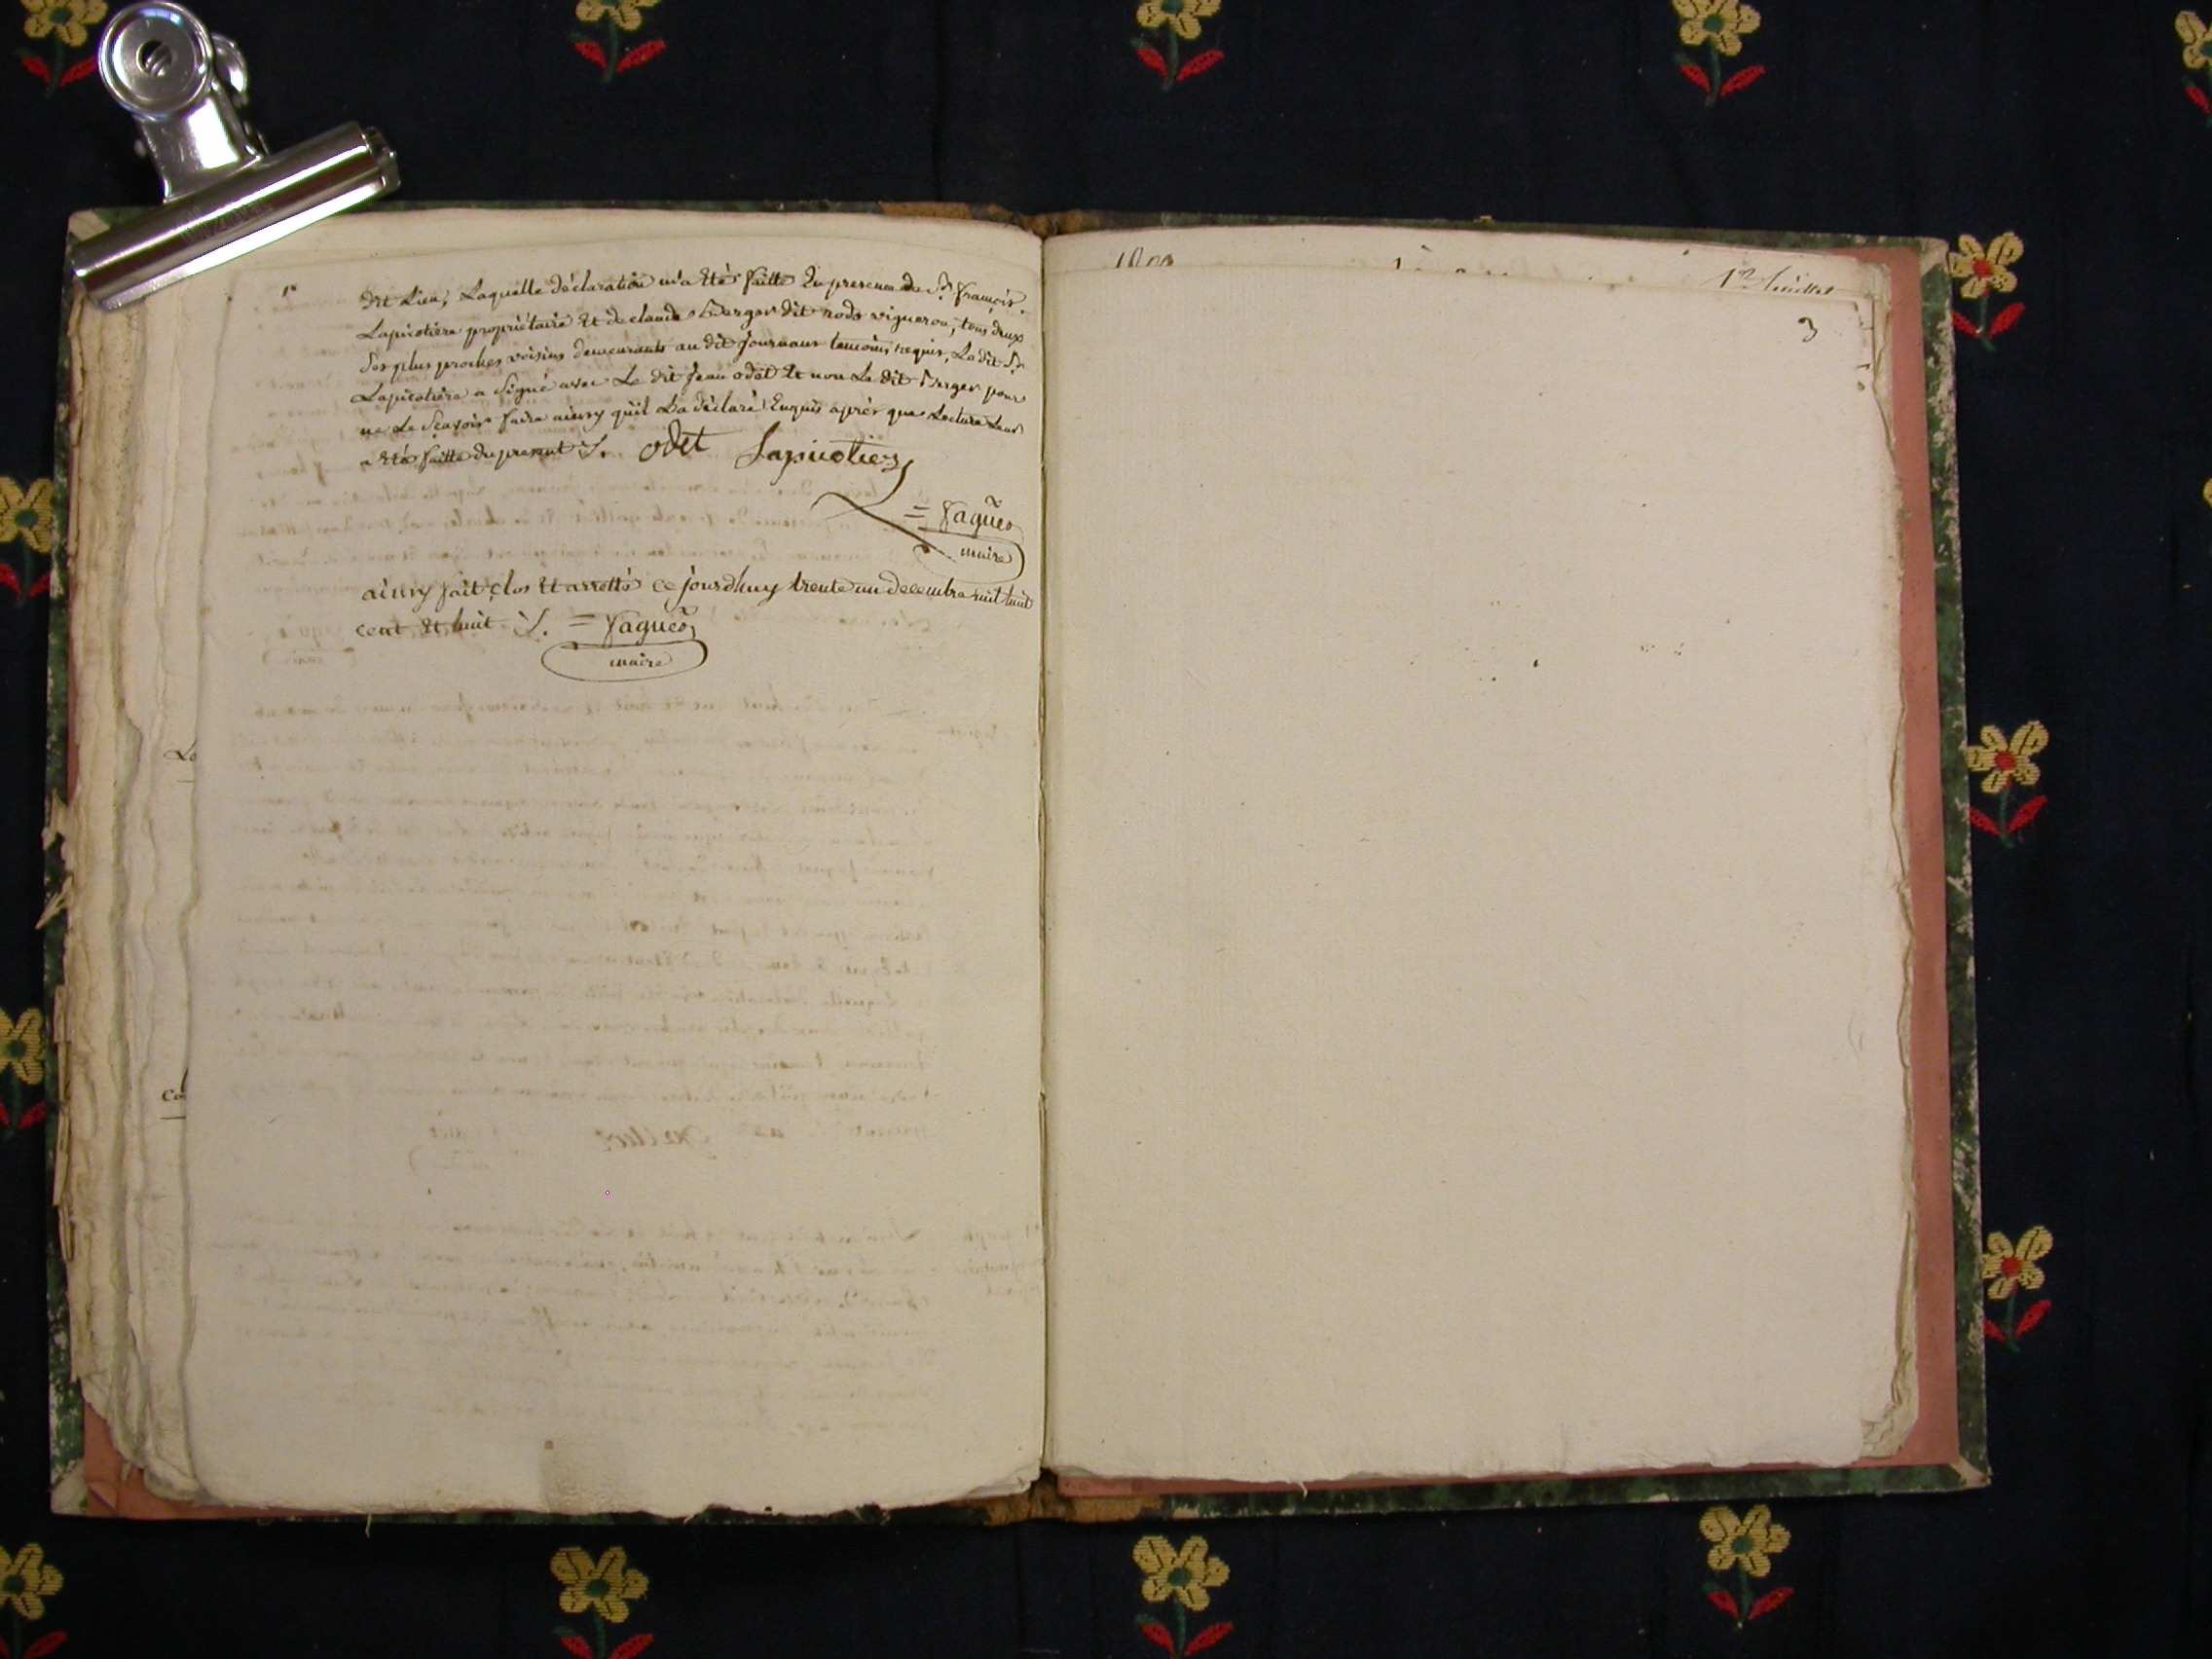 dit Lieu, Laquelle déclaration m'a été faitte En presence du Sr. françois
Lapicotière propriétaire Et de claude Berger dit rodo vigneron, tous deux
Ses plus proches voisins demeurants au dit Journans temoins requis, Le dit Sr.
Lapicotière a Signé avec Le dit Jean odet Et non Le dit Berger pour
ne Le Sçavoir faire ainsy qu'il L'a déclaré Enquis après que Lecture Leur
a été faitte du present ./.
odet Lapicotiere
= faguës
maire
ainsy fait clos Et arretté ce jourdhuy trente un decembre mil huit
cent Et huit ./. = faguës
maire
Lo
3